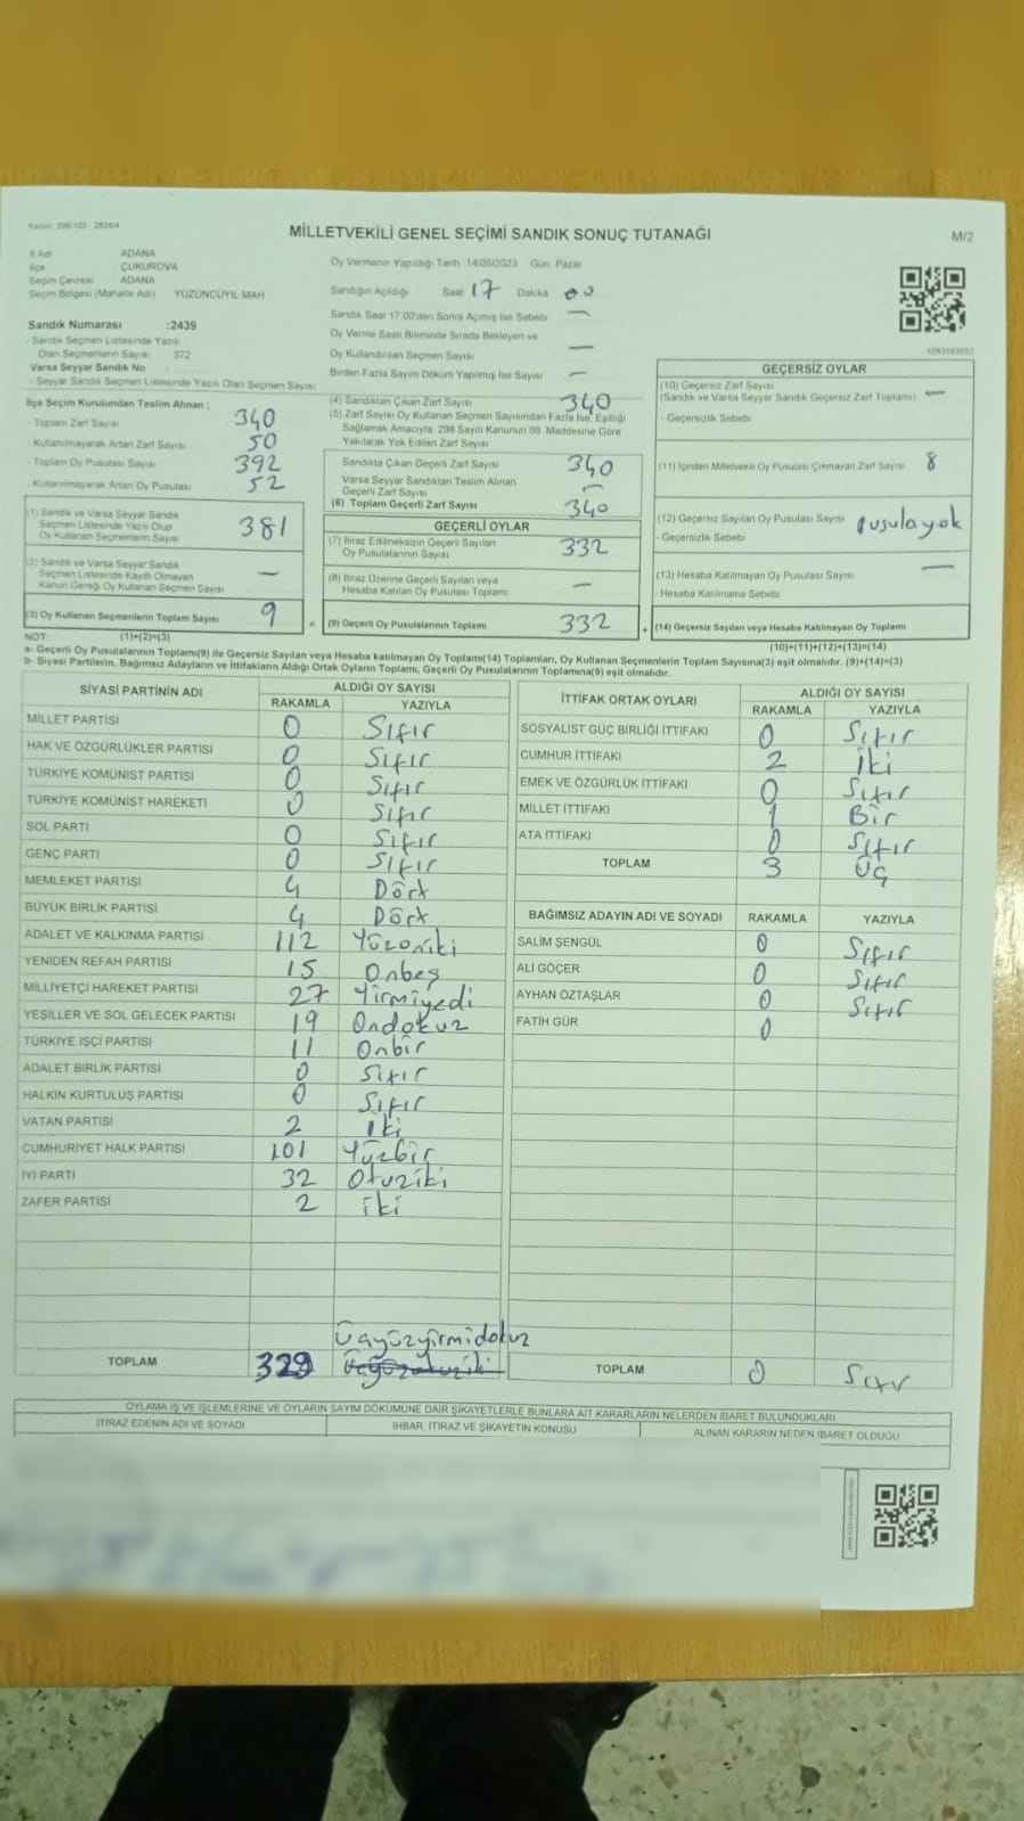 MİLLETVEKİLİ GENEL SEÇİMİ SANDIK SONUÇ TUTANAĞI
M/2
İl Adı ADANA
İlçe ÇUKUROVA
Seçim Çevresi ADANA
Seçim Bölgesi (Mahalle Adı) YÜZÜNCÜYIL MAH
Sandık Numarası :2439
- Sandık Seçmen Listesinde Yazılı
Olan Seçmenlerin Sayısı 372
Varsa Seyyar Sandık No
- Seyyar Sandık Seçmen Listesinde Yazılı Olan Seçmen Sayısı
Oy Vermenin Yapıldığı Tarih 14/05/2023 Gün Pazar
Sandığın Açıldığı Saat 17 Dakika 00
Sandık Saat 17:00'den Sonra Açılmış İse Sebebi —
Oy Verme Saati Bitiminde Sırada Bekleyen ve
Oy Kullandırılan Seçmen Sayısı —
Birden Fazla Sayım Döküm Yapılmış İse Sayısı —
İlçe Seçim Kurulundan Teslim Alınan :
- Toplam Zarf Sayısı 340
- Kullanılmayarak Artan Zarf Sayısı 50
- Toplam Oy Pusulası Sayısı 392
- Kullanılmayarak Artan Oy Pusulası 52
(1) Sandık ve Varsa Seyyar Sandık
Seçmen Listesinde Yazılı Olup
Oy Kullanan Seçmenlerin Sayısı 381
(2) Sandık ve Varsa Seyyar Sandık
Seçmen Listesinde Kayıtlı Olmayan
Kanun Gereği Oy Kullanan Seçmen Sayısı —
(3) Oy Kullanan Seçmenlerin Toplam Sayısı 9
(1)+(2)=(3)
(4) Sandıktan Çıkan Zarf Sayısı 340
(5) Zarf Sayısı Oy Kullanan Seçmen Sayısından Fazla İse, Eşitliği
Sağlamak Amacıyla 298 Sayılı Kanunun 98. Maddesine Göre
Yakılarak Yok Edilen Zarf Sayısı
Sandıkta Çıkan Geçerli Zarf Sayısı 340
Varsa Seyyar Sandıktan Teslim Alınan
Geçerli Zarf Sayısı —
(6) Toplam Geçerli Zarf Sayısı 340
GEÇERLİ OYLAR
(7) İtiraz Edilmeksizin Geçerli Sayılan
Oy Pusulalarının Sayısı 332
(8) İtiraz Üzerine Geçerli Sayılan veya
Hesaba Katılan Oy Pusulası Toplamı —
(9) Geçerli Oy Pusulalarının Toplamı 332
GEÇERSİZ OYLAR
(10) Geçersiz Zarf Sayısı
(Sandık ve Varsa Seyyar Sandık Geçersiz Zarf Toplamı) —
- Geçersizlik Sebebi
(11) İçinden Milletvekili Oy Pusulası Çıkmayan Zarf Sayısı 8
(12) Geçersiz Sayılan Oy Pusulası Sayısı pusulayok
- Geçersizlik Sebebi
(13) Hesaba Katılmayan Oy Pusulası Sayısı —
- Hesaba Katılmama Sebebi
(14) Geçersiz Sayılan veya Hesaba Katılmayan Oy Toplamı
(10)+(11)+(12)+(13)=(14)
NOT:
a- Geçerli Oy Pusulalarının Toplamı(9) ile Geçersiz Sayılan veya Hesaba katılmayan Oy Toplamı(14) Toplamları, Oy Kullanan Seçmenlerin Toplam Sayısına(3) eşit olmalıdır. (9)+(14)=(3)
b- Siyasi Partilerin, Bağımsız Adayların ve İttifakların Aldığı Ortak Oyların Toplamı, Geçerli Oy Pusulalarının Toplamına(9) eşit olmalıdır.
SİYASİ PARTİNİN ADI ALDIĞI OY SAYISI
RAKAMLA YAZIYLA
MİLLET PARTİSİ 0 Sıfır
HAK VE ÖZGÜRLÜKLER PARTİSİ 0 Sıfır
TÜRKİYE KOMÜNİST PARTİSİ 0 Sıfır
TÜRKİYE KOMÜNİST HAREKETİ 0 Sıfır
SOL PARTİ 0 Sıfır
GENÇ PARTİ 0 Sıfır
MEMLEKET PARTİSİ 4 Dört
BÜYÜK BİRLİK PARTİSİ 4 Dört
ADALET VE KALKINMA PARTİSİ 112 Yüzoniki
YENİDEN REFAH PARTİSİ 15 Onbeş
MİLLİYETÇİ HAREKET PARTİSİ 27 Yirmiyedi
YEŞİLLER VE SOL GELECEK PARTİSİ 19 Ondokuz
TÜRKİYE İŞÇİ PARTİSİ 11 Onbir
ADALET BİRLİK PARTİSİ 0 Sıfır
HALKIN KURTULUŞ PARTİSİ 0 Sıfır
VATAN PARTİSİ 2 İki
CUMHURİYET HALK PARTİSİ 101 Yüzbir
İYİ PARTİ 32 Otuziki
ZAFER PARTİSİ 2 iki
Üçyüzyirmidokuz
TOPLAM 329
İTTİFAK ORTAK OYLARI ALDIĞI OY SAYISI
RAKAMLA YAZIYLA
SOSYALİST GÜÇ BİRLİĞİ İTTİFAKI 0 Sıfır
CUMHUR İTTİFAKI 2 İki
EMEK VE ÖZGÜRLÜK İTTİFAKI 0 Sıfır
MİLLET İTTİFAKI 1 Bir
ATA İTTİFAKI 0 Sıfır
TOPLAM 3 Üç
BAĞIMSIZ ADAYIN ADI VE SOYADI RAKAMLA YAZIYLA
SALİM ŞENGÜL 0 Sıfır
ALİ GÖÇER 0 Sıfır
AYHAN ÖZTAŞLAR 0 Sıfır
FATİH GÜR 0
TOPLAM 0 Sıfır
OYLAMA İŞ VE İŞLEMLERİNE VE OYLARIN SAYIM DÖKÜMÜNE DAİR ŞİKAYETLERLE BUNLARA AİT KARARLARIN NELERDEN İBARET BULUNDUKLARI
İTİRAZ EDENİN ADI VE SOYADI İHBAR, İTİRAZ VE ŞİKAYETİN KONUSU ALINAN KARARIN NEDEN İBARET OLDUĞU